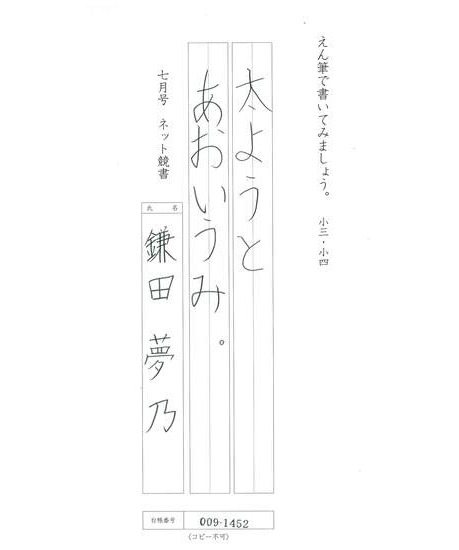 えん筆で書いてみましょう。 小三・小四
太ようと
あおいうみ。
七月号 ネット競書
氏名
鎌田 夢乃
台帳番号 009-1452
(コピー不可)